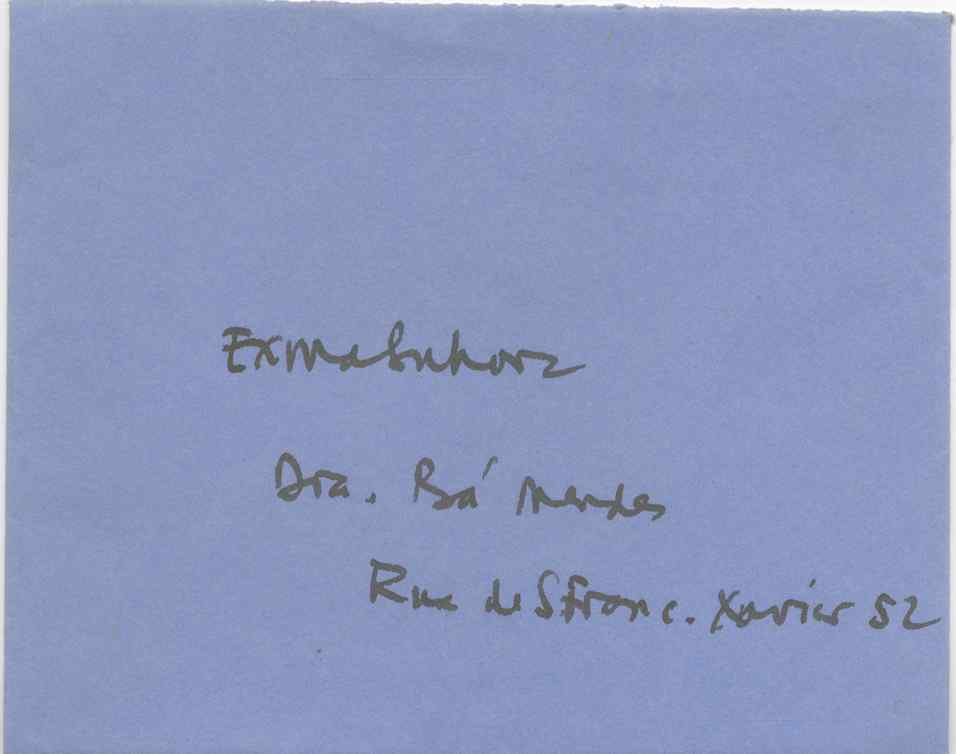 Exma Senhora
Dra. Bá Mendes
Rua de S Franc. Xavier 52